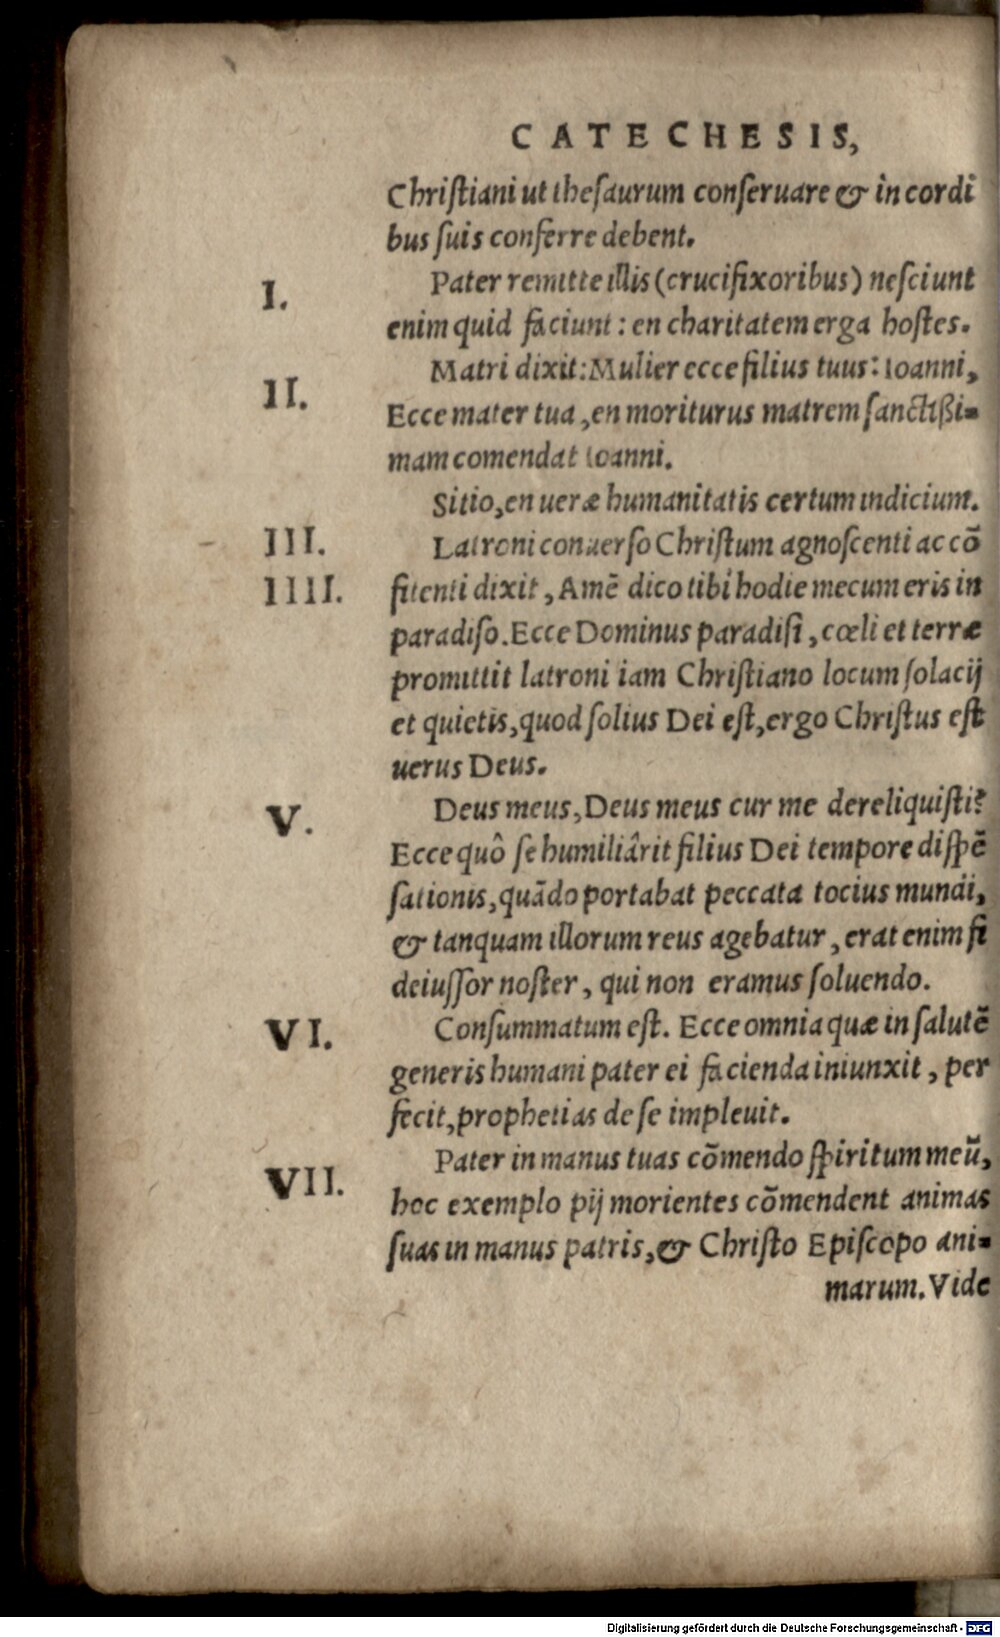 CATECHESIS,
Christiani ut thesaurum conseruare & in cordi
bus suis conferre debent.
I. Pater remitte illis (crucifixoribus) nesciunt
enim quid faciunt: en charitatem erga hostes.
II. Matri dixit: Mulier ecce filius tuus: Ioanni,
Ecce mater tua, en moriturus matrem sanctißi=
mam comendat Ioanni.
Sitio, en ueræ humanitatis certum indicium.
III. Latroni conuerso Christum agnoscenti ac cō
IIII. fitenti dixit, Amē dico tibi hodie mecum eris in
paradiso. Ecce Dominus paradisi, cœli et terræ
promittit latroni iam Christiano locum solacij
et quietis, quod solius Dei est, ergo Christus est
uerus Deus.
V. Deus meus, Deus meus cur me dereliquisti?
Ecce quô se humiliârit filius Dei tempore dispē
sationis, quādo portabat peccata tocius mundi,
& tanquam illorum reus agebatur, erat enim fi
deiussor noster, qui non eramus soluendo.
VI. Consummatum est. Ecce omnia quæ in salutē
generis humani pater ei facienda iniunxit, per
fecit, prophetias de se impleuit.
VII. Pater in manus tuas cōmendo spiritum meū,
hoc exemplo pij morientes cōmendent animas
suas in manus patris, & Christo Episcopo ani=
marum. Vide
Digitalisierung gefördert durch die Deutsche Forschungsgemeinschaft - DFG